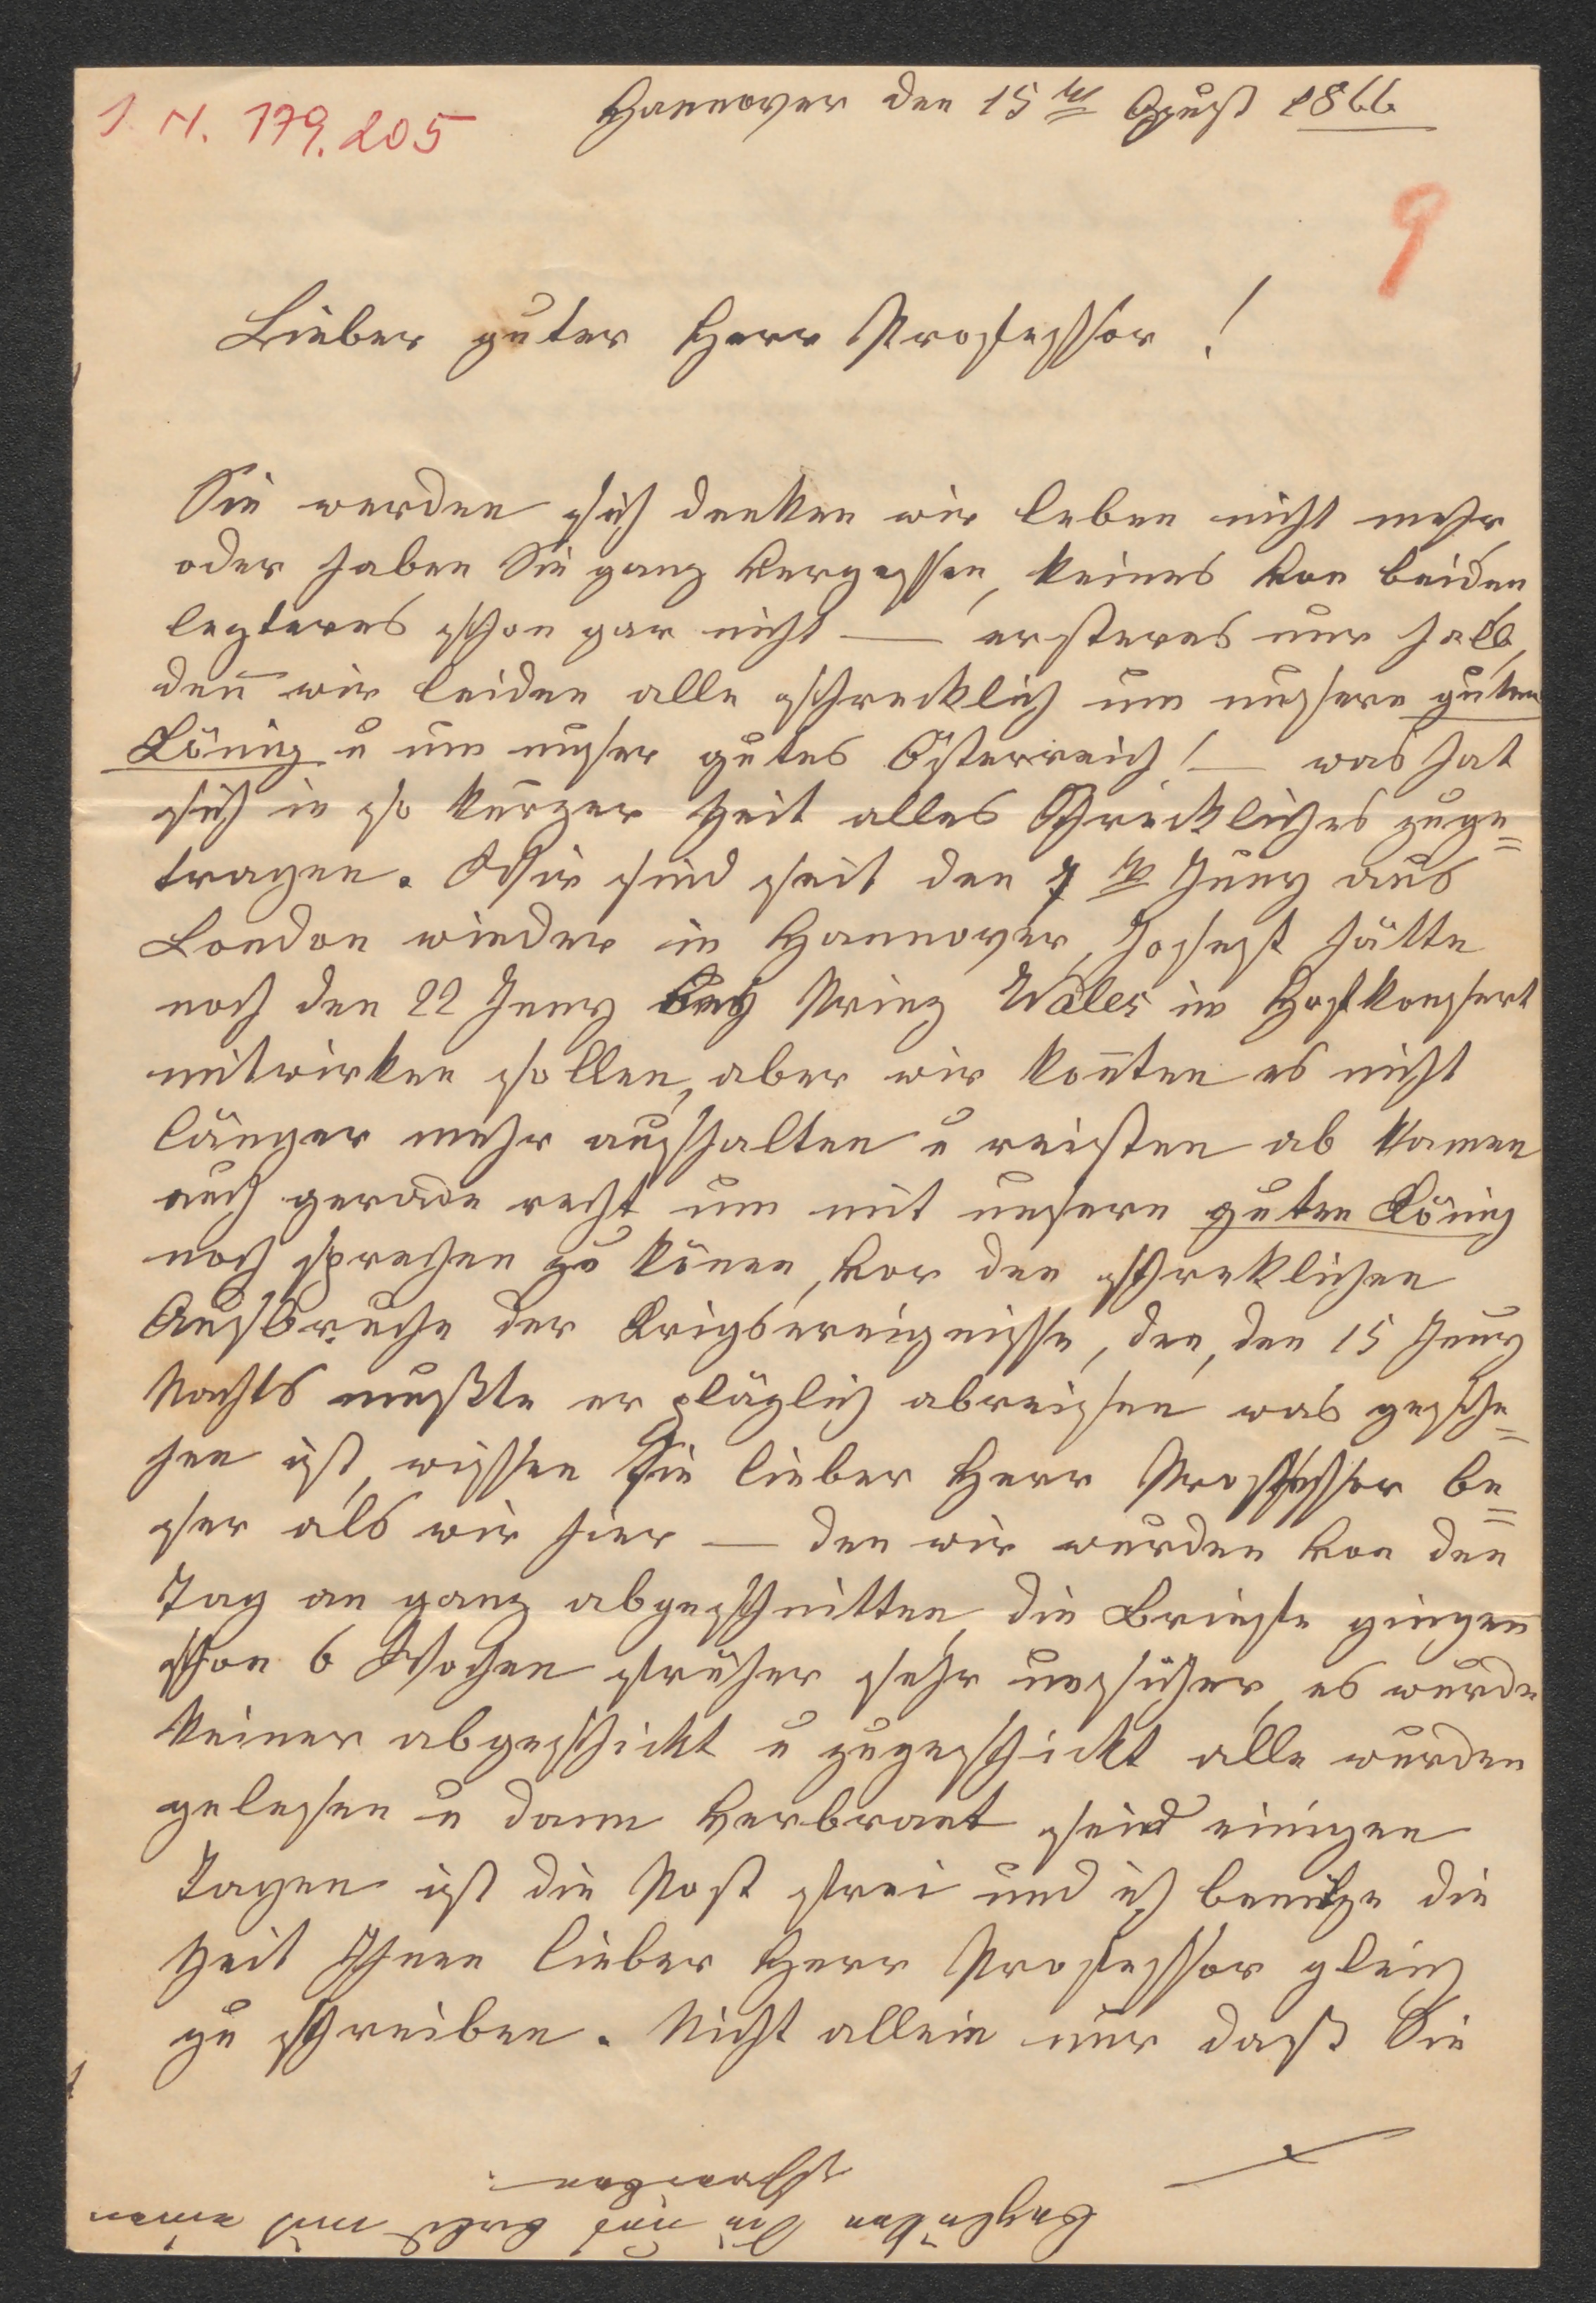 I. N. 179.205
Hannover den 15ten August 1866
9
Lieber guter Herr Professor!
Sie werden sich denken wir leben nicht mehr
oder haben Sie ganz vergessen, keines von beiden
lezteres schon gar nicht — ersteres nur halb,
den̄ wir leiden alle schrecklich um unsern guten
König u um unser gutes Österreich! — was hat
sich in so kurzer Zeit alles Schreckliches zuge=
tragen. Wir sind seit den 7ten Juny aus
London wieder in Hannover, Josef hätte
noch den 22 Juny bey Prinz Wales im Hofkonzert
mitwirken sollen, aber wir kon̄ten es nicht
länger mehr aushalten u reisten ab kamen
auch gerade recht um mit unsern guten König
noch sprechen zu könen, vor den schreklichen
Ausbruche der Krigsereignisse, den, den 15 Juny
Nachts mußte er pläzlich abreisen was gesche=
hen ist, wissen Sie lieber Herr Professor be=
ser als wir hier — den wir wurden von den̄
Tag an ganz abgeschnitten, die Briefe gingen̄
schon 6 Wochen früher sehr unsicher, es wurde
keiner abgeschickt u zugeschickt alle wurden
gelesen u dann verbrant seid einigen
Tagen ist die Post frei und ich benütze die
Zeit Ihnen lieber Herr Professor gleich
zu schreiben. Nicht allein nur daß Sie
beglücken Sie uns bald mit einen
Schreiben.